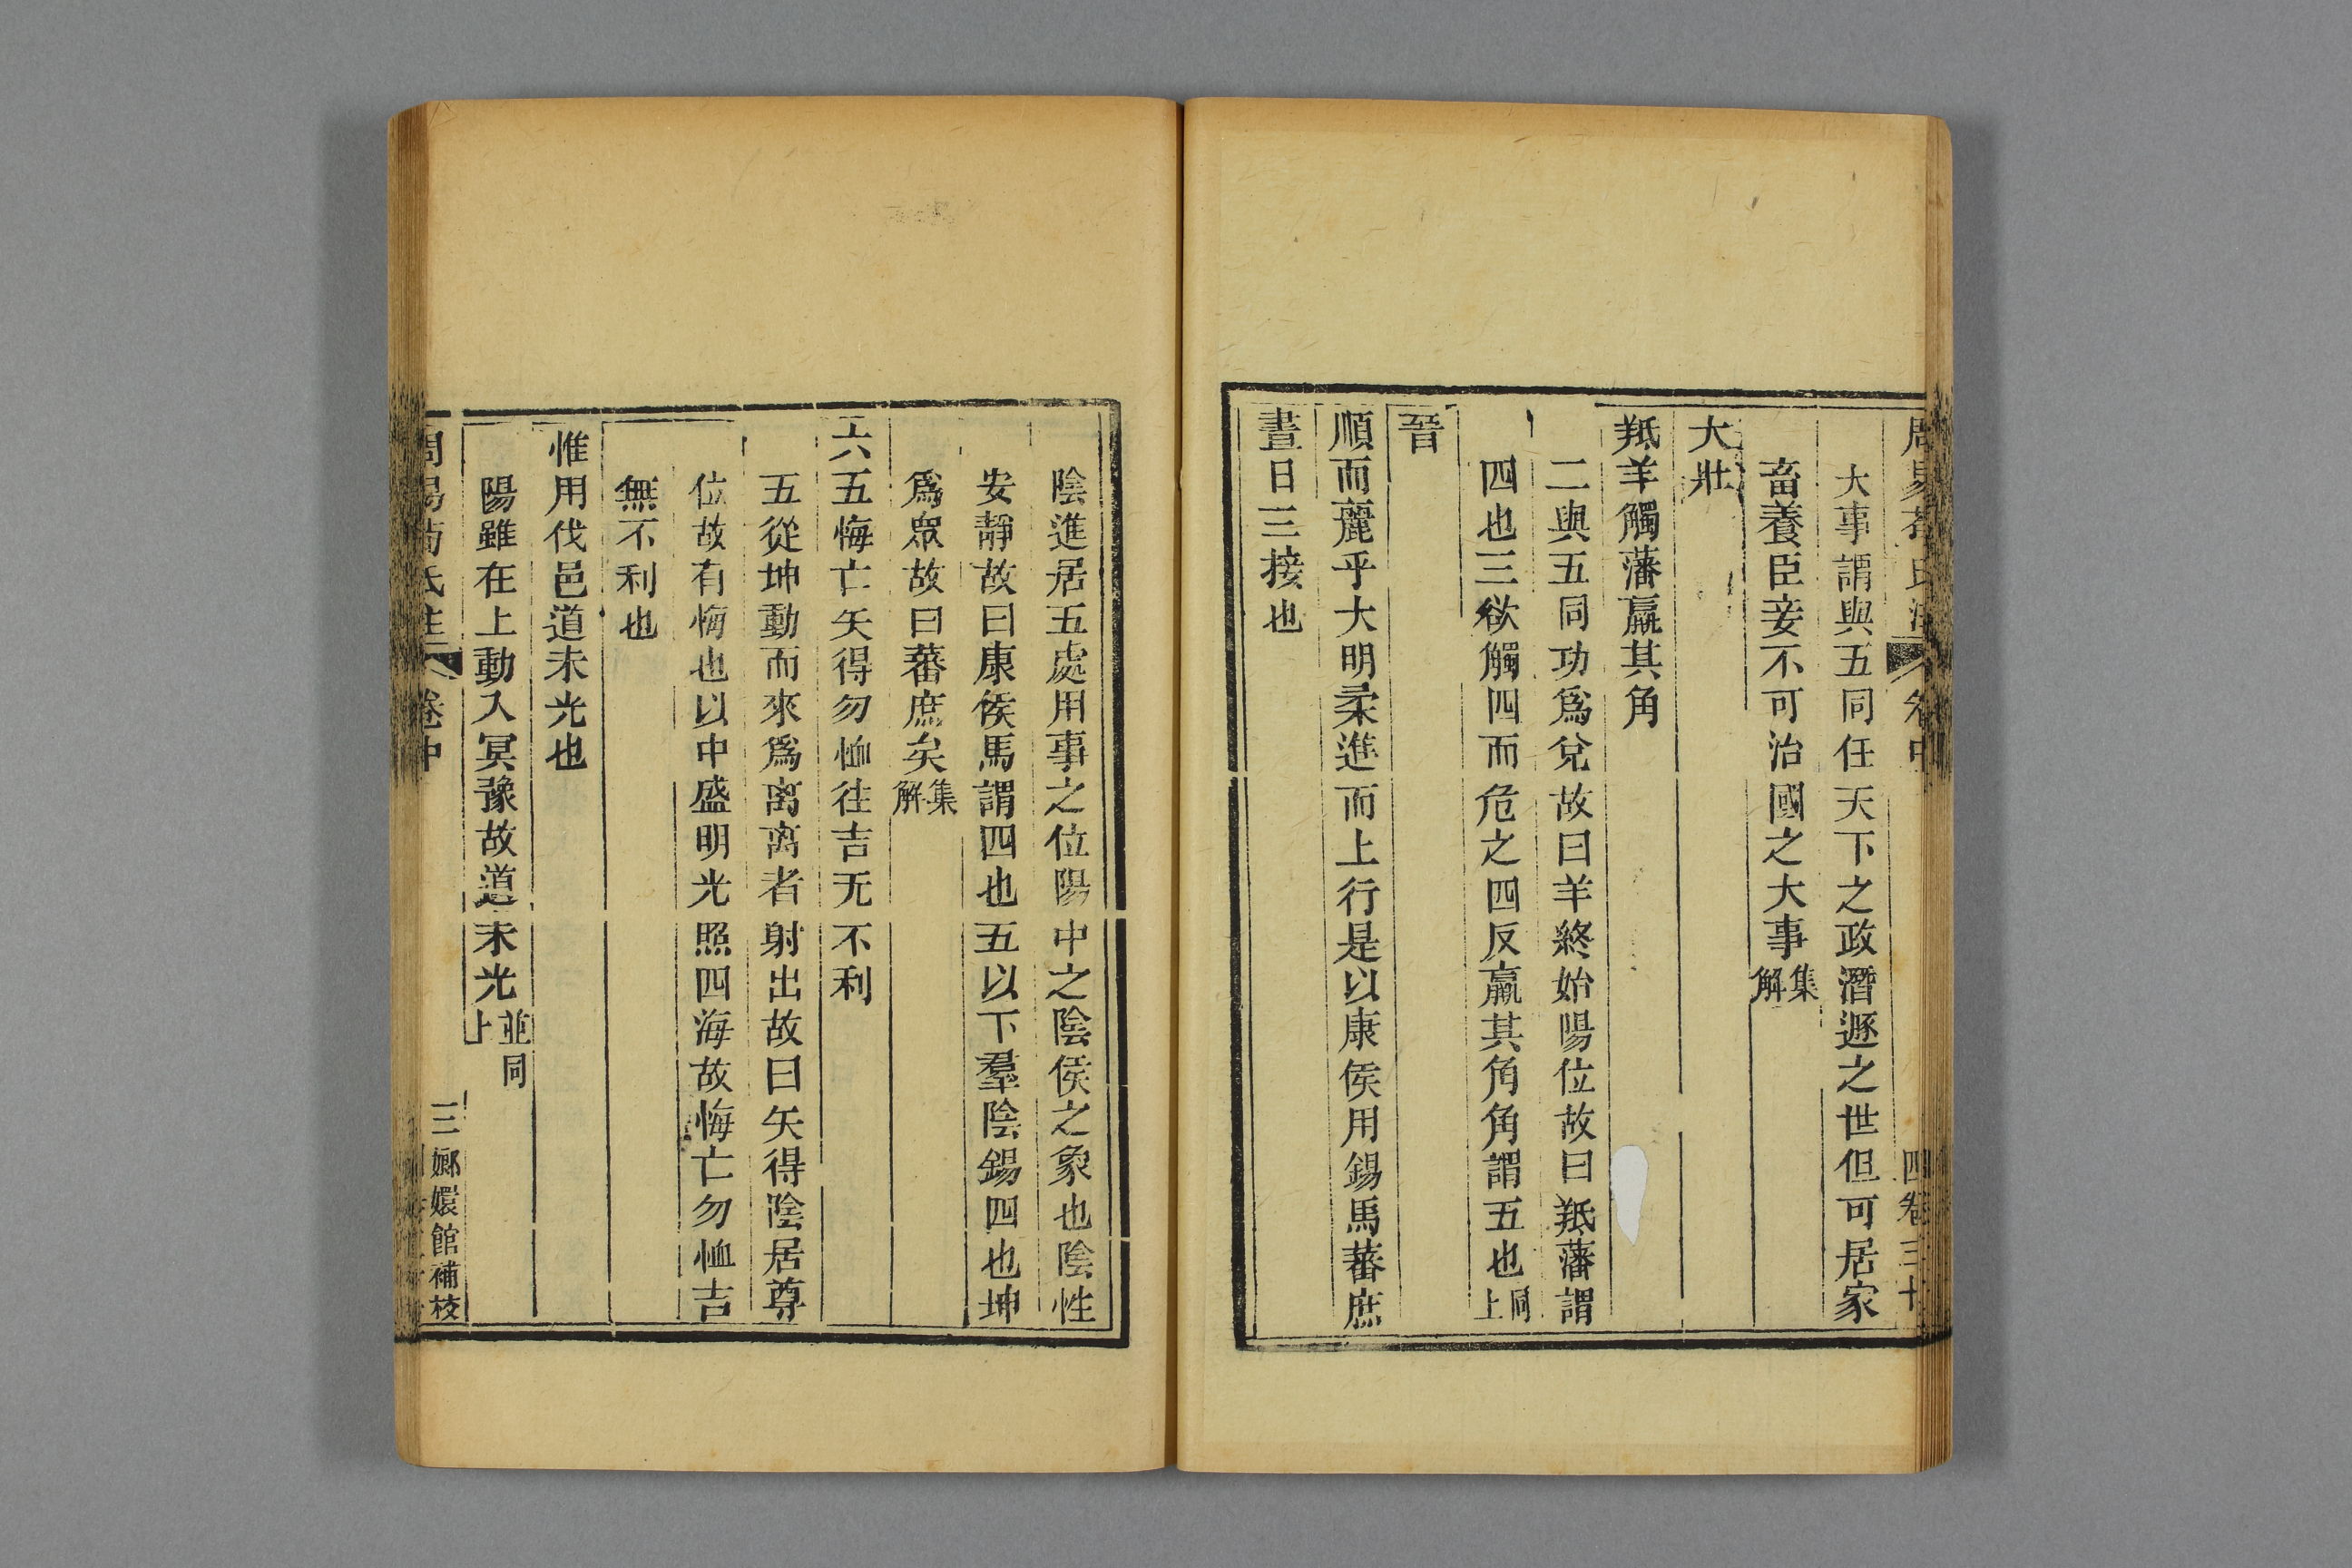 周易荀氏注 卷中 四卷三十
大事謂與五同任天下之政潛遯之世但可居家
畜養臣妾不可治國之大事集解
大壯
羝羊觸藩羸其角
二與五同功爲兌故曰羊終始陽位故曰羝藩謂
四也三欲觸四而危之四反羸其角角謂五也同上
晉
順而麗乎大明柔進而上行是以康侯用錫馬蕃庶
晝日三接也
陰進居五處用事之位陽中之陰侯之象也陰性
安靜故曰康侯馬謂四也五以下羣陰錫四也坤
爲眾故曰蕃庶矣集解
六五悔亡矢得勿恤往吉无不利
五從坤動而來爲离离者射出故曰矢得陰居尊
位故有悔也以中盛明光照四海故悔亡勿恤吉
無不利也
惟用伐邑道未光也
陽雖在上動入冥豫故道未光並同上
周易荀氏注 卷中 三 嫏嬛館補校